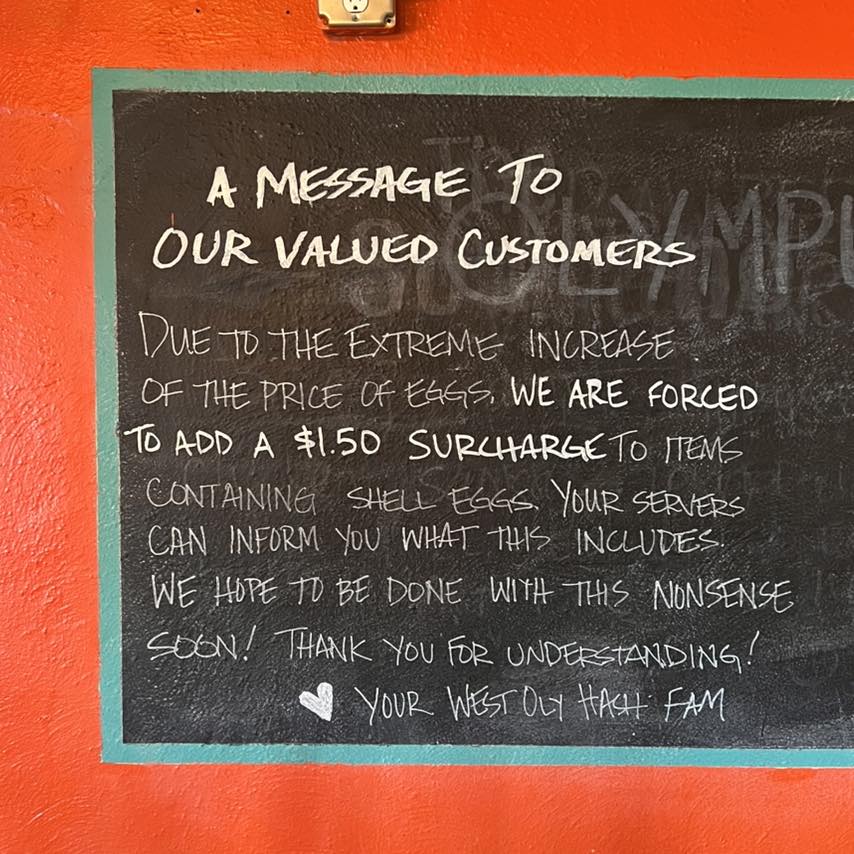 A MESSAGE TO
OUR VALUED CUSTOMERS
DUE TO THE EXTREME INCREASE
OF THE PRICE OF EGGS, WE ARE FORCED
TO ADD A $1.50 SURCHARGE TO ITEMS
CONTAINING SHELL EGGS. YOUR SERVERS
CAN INFORM YOU WHAT THIS INCLUDES.
WE HOPE TO BE DONE WITH THIS NONSENSE
SOON! THANK YOU FOR UNDERSTANDING!
YOUR WEST OLY HASH FAM